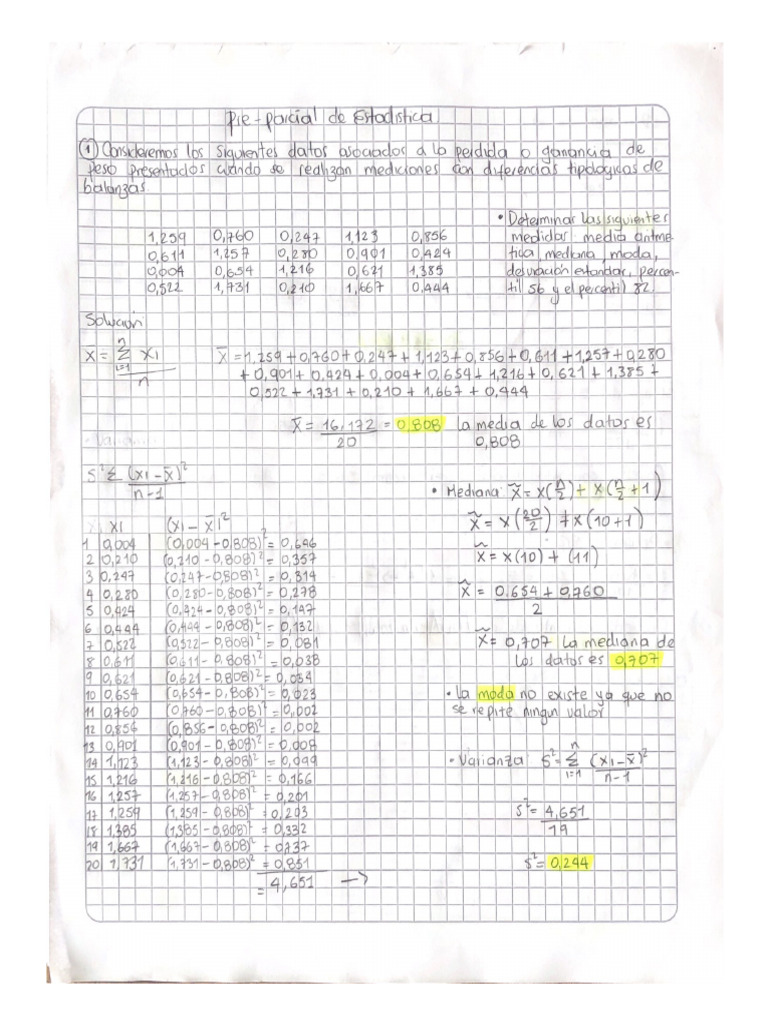 Pre-parcial de Estadistica
① Consideremos los siguientes datos asociados a la perdida o ganancia de
peso presentados cuando se realizan mediciones con diferencias tipologicas de
balanzas
1,259 0,760 0,247 1,123 0,856
0,611 1,257 0,280 0,901 0,424
0,004 0,654 1,216 0,621 1,385
0,522 1,731 0,210 1,667 0,444
• Determinar las siguientes
medidas media aritme-
tica, mediana, moda,
desviación estandar, percen-
til 56 y el percentil 82
Solución
x̄ = n Σ i=1 xi / n
x̄ = 1,259 + 0,760 + 0,247 + 1,123 + 0,856 + 0,611 + 1,257 + 0,280
+ 0,901 + 0,424 + 0,004 + 0,654 + 1,216 + 0,621 + 1,385 +
0,522 + 1,731 + 0,210 + 1,667 + 0,444
x̄ = 16,172 / 20 = 0,808 la media de los datos es
0,808
S² Σ (xi - x̄)² / n-1
xi (xi - x̄)²
1 0,004 (0,004 - 0,808)² = 0,646
2 0,210 (0,210 - 0,808)² = 0,357
3 0,247 (0,247 - 0,808)² = 0,314
4 0,280 (0,280 - 0,808)² = 0,278
5 0,424 (0,424 - 0,808)² = 0,147
6 0,444 (0,444 - 0,808)² = 0,132
7 0,522 (0,522 - 0,808)² = 0,081
8 0,611 (0,611 - 0,808)² = 0,038
9 0,621 (0,621 - 0,808)² = 0,034
10 0,654 (0,654 - 0,808)² = 0,023
11 0,760 (0,760 - 0,808)² = 0,002
12 0,856 (0,856 - 0,808)² = 0,002
13 0,901 (0,901 - 0,808)² = 0,008
14 1,123 (1,123 - 0,808)² = 0,099
15 1,216 (1,216 - 0,808)² = 0,166
16 1,257 (1,257 - 0,808)² = 0,201
17 1,259 (1,259 - 0,808)² = 0,203
18 1,385 (1,385 - 0,808)² = 0,332
19 1,667 (1,667 - 0,808)² = 0,737
20 1,731 (1,731 - 0,808)² = 0,851
= 4,651 →
• Mediana: x̃ = x(n/2) + x(n/2 + 1)
x̃ = x(20/2) + x(10+1)
x̃ = x(10) + (11)
x̃ = 0,654 + 0,760 / 2
x̃ = 0,707 la mediana de
los datos es 0,707
• la moda no existe ya que no
se repite ningun valor
• Varianza: S² = n Σ i=1 (xi - x̄)² / n-1
S² = 4,651 / 19
S² = 0,244